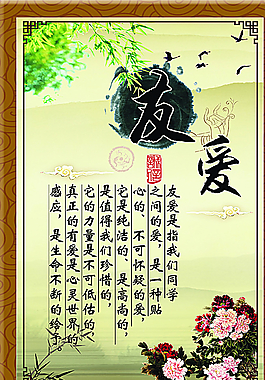 友爱
友爱是指我们同学
之间的爱，是一种贴
心的、不可怀疑的爱，
它是纯洁的、是高尚的，
是值得我们珍惜的，
它的力量是不可低估的，
真正的有爱是心灵世界的
感应，是生命不断的给予。